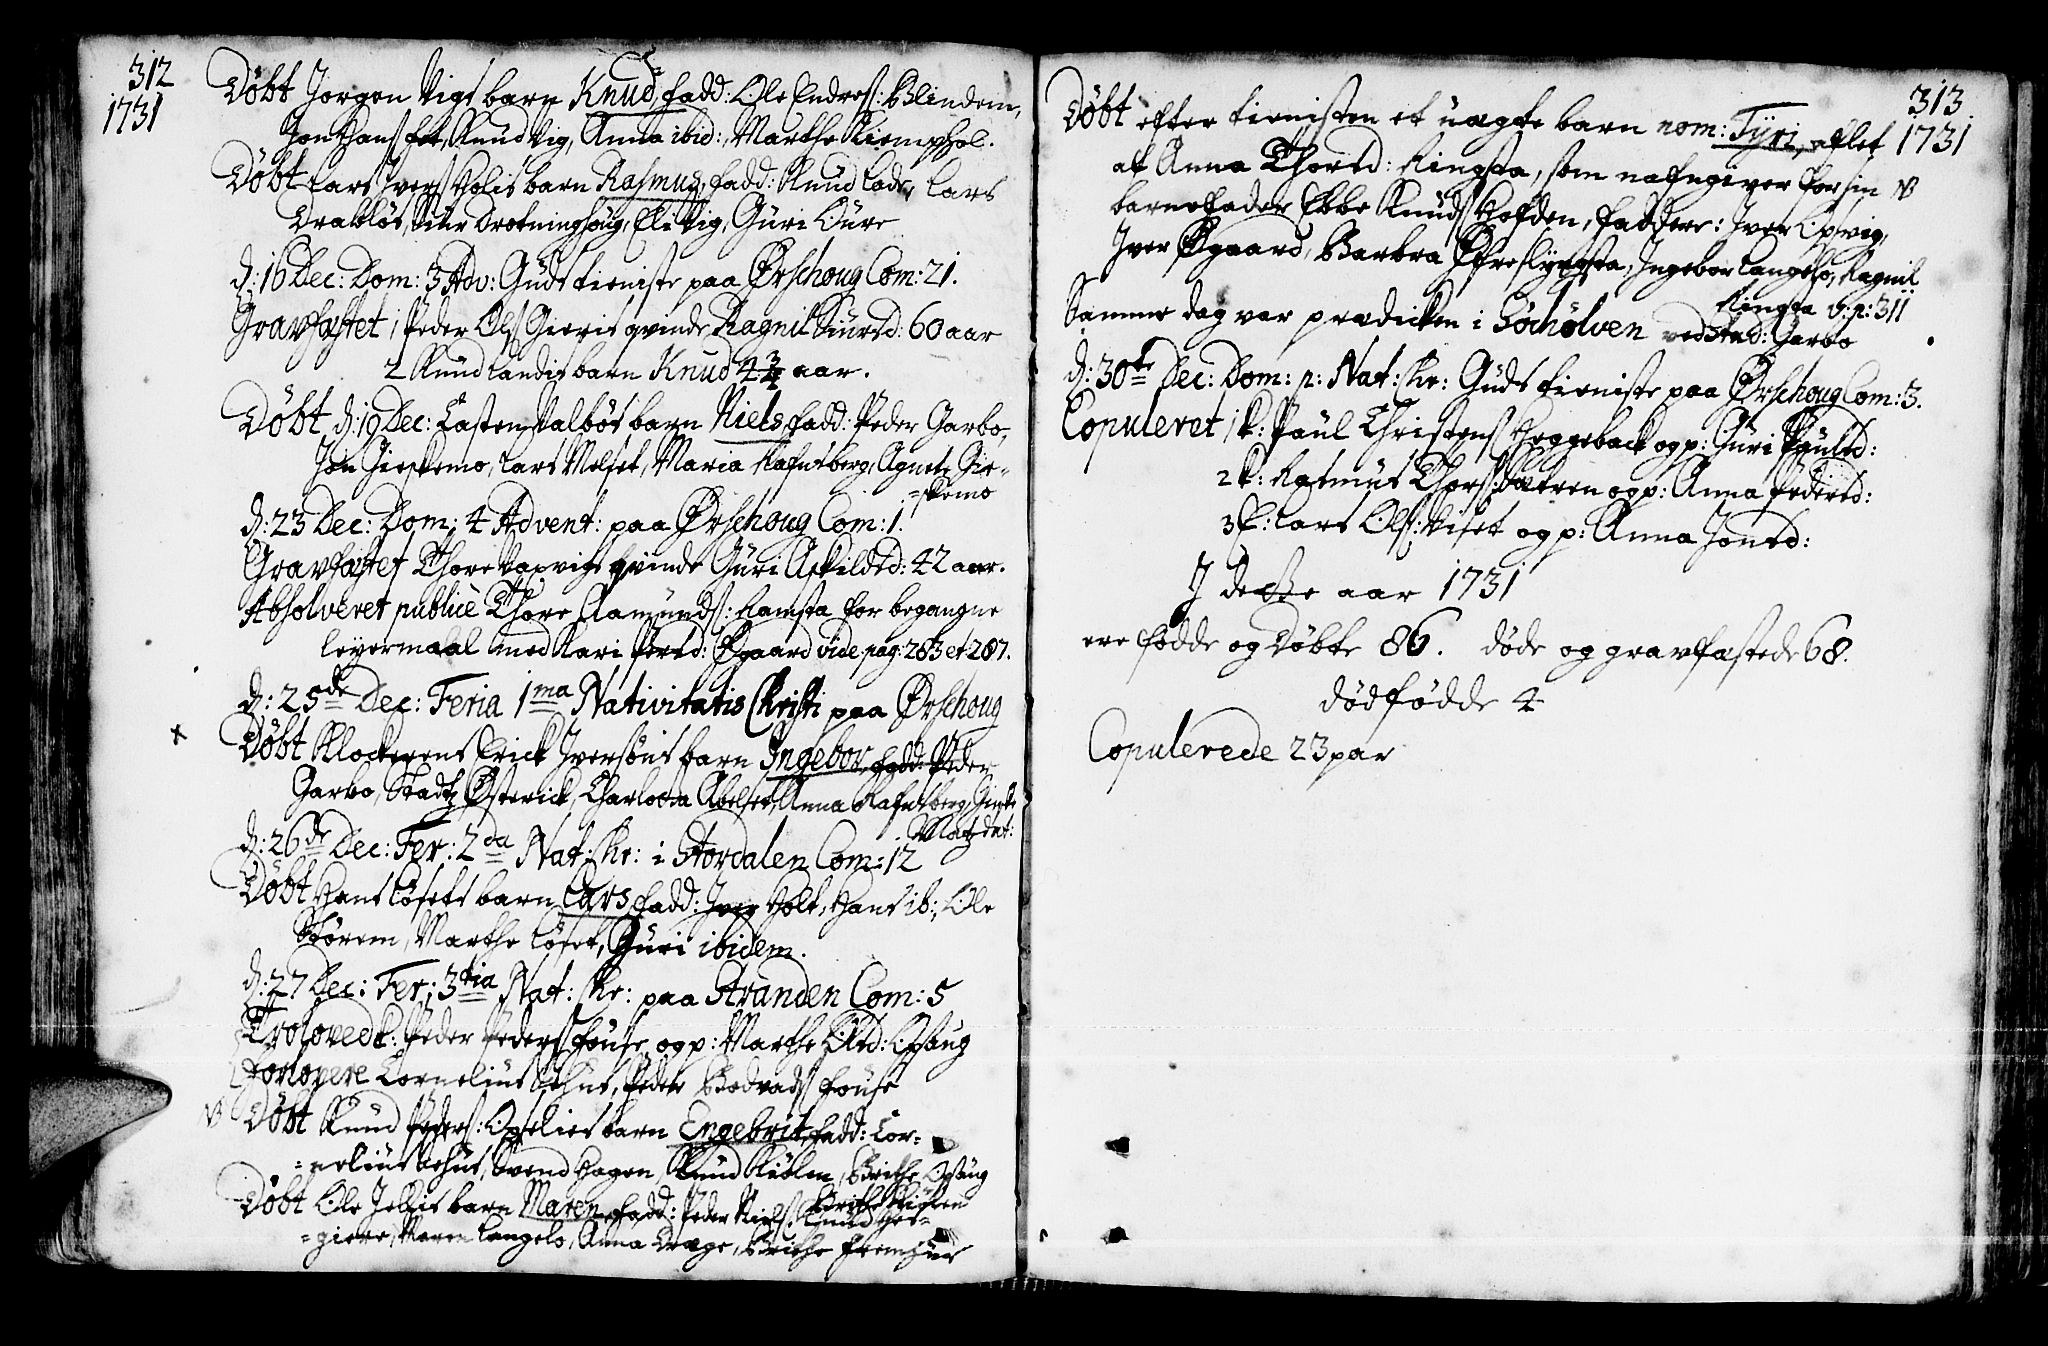 312
1731
Døbt Jørgen Vigs barn Knud, fadd: Ole Endres: Blindem,
Jon Hans fet, Knud Vig, Anna ibid:, Marthe Kiemphol.
Døbt Lars Ivers Holis barn Rasmus, fadd: Knud Lade, Lars
Drabløs, Siur Drotninghoug, Eli Vig, Guri Dure
d: 16 Dec: Dom: 3 Adv: Guds tieniste paa Ørschoug Com: 21.
Gravfæstet 1 Peder Ols Gieris qvinde Ragnil Siursd: 60 aar
2 Knud Landis barn Knud 4 3/4 aar.
Døbt d: 19 Dec: Casten Valbøs barn Niels, fadd: Peder Garbo,
Jon Gieskemo, Lars Melset, Maria Rafnsberg, Agnete Gie-
=skemo
d: 23 Dec: Dom: 4 Advent: paa Ørschoug Com: 1.
Gravfæstet Thore Vaxvigs qvinde Guri Askildsd: 42 aar.
Absolveret publicè Thore Aamunds: Ramsta for begangne
leyermaal med Kari Persd: Øgaard vide pag: 283 et 287.
d: 25de Dec: Feria 1ma Nativitatis Christi paa Ørschoug
Døbt Klockerens Erick Iversøns barn Ingebor, fadd: Peder
Garbo, Stadtz Østerick, Charlotta Abelset, Anna Rafnsberg,
Matzdat:
d: 26de Dec: Fer: 2da Nat: Chr: i Stordalen Com: 12
Døbt Hans Løsets barn Lars, fadd: Iver Hole, Hans ib:, Ole
Størem, Marthe Løset, Guri ibidem.
d: 27 Dec: Fer: 3tia Nat: Chr: paa Stranden Com: 5
Trolovede k: Peder Peders Fouse og p: Marthe Olsd: Opsaug
forlovere Cornelius Sehus, Peder Bodvads Fouse
Døbt Knud Peders: Opselies barn Engebrit, fadd: Cor-
=nelius Sehus, Svend Hagen, Knud Kiølen, Brithe Opsaug
Brithe Kiølen
Døbt Ole Jellis barn Maren, fadd: Peder Niels:, Knud
=giere, Maren Langelo, Anna Drage, Brithe Fremhus
313
1731
Døbt efter tienisten et uægte barn nom: Tyri, aflet
af Anna Thorsd: Ringsta, som nafngiver for sin
barnefader Ebbe Knuds Hofden, faddere: Iver Opsvig,
Iver Øgaard, Barbra Øfreslyngsta, Ingebor Langelo, Ragnil
Ringsta v: p: 311
Samme dag var prædicken i Sørhølven ved Stud: Garbo
d: 30te Dec: Dom: p: Nat: Chr: Guds tieniste paa Ørschoug Com: 3.
Copuleret 1 k: Paul Christens Heggeback og p: Guri Paulsd:
2 k: Rasmus Thors: Sætren og p: Anna Pedersd:
3 E: Lars Ols: Viset og p: Anna Jonsd:
I dette aar 1731
ere fødde og Døbte 86. døde og gravfæstede 68.
dødfødde 4
Copulerede 23 par